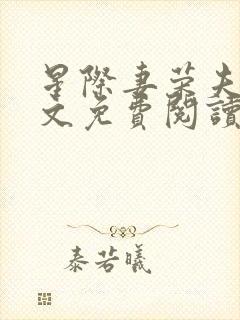 星際妻榮夫
文免費閱讀
泰若曦